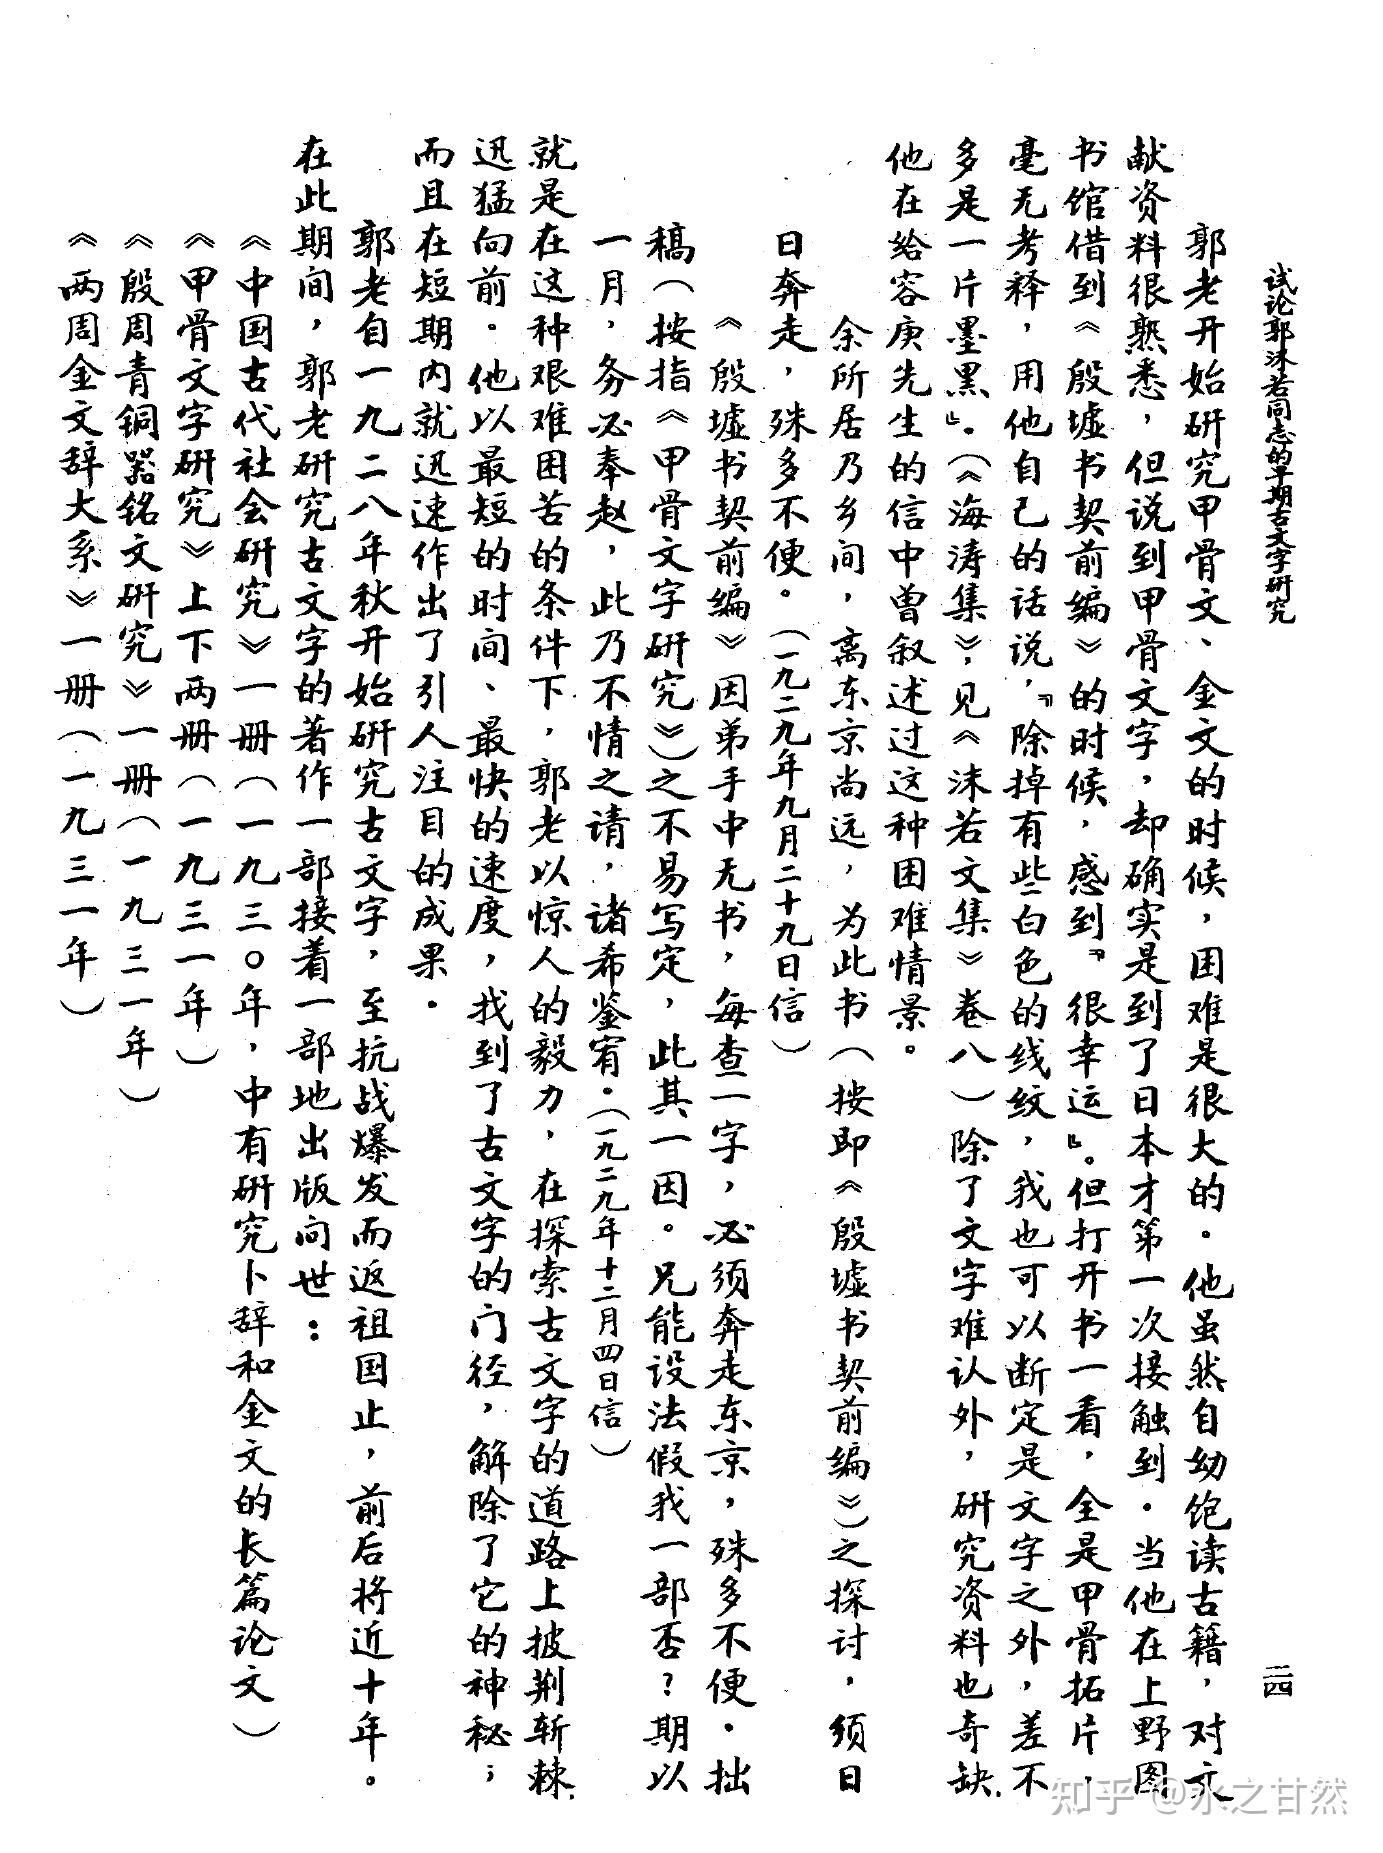 试论郭沫若同志的早期古文字研究
二四
郭老开始研究甲骨文、金文的时候，困难是很大的．他虽然自幼饱读古籍，对文
献资料很熟悉，但说到甲骨文字，却确实是到了日本才第一次接触到．当他在上野图
书馆借到《殷墟书契前编》的时候，感到『很幸运』。但打开书一看，全是甲骨拓片，
毫无考释，用他自己的话说，『除掉有些白色的线纹，我也可以断定是文字之外，差不
多是一片墨黑』．（《海涛集》，见《沫若文集》卷八）除了文字难认外，研究资料也奇缺．
他在给容庚先生的信中曾叙述过这种困难情景。
余所居乃乡间，离东京尚远，为此书（按即《殷墟书契前编》）之探讨，须日
日奔走，殊多不便。（一九二九年九月二十九日信）
《殷墟书契前编》因弟手中无书，每查一字，必须奔走东京，殊多不便．拙
稿（按指《甲骨文字研究》）之不易写定，此其一因。兄能设法假我一部否？期以
一月，务必奉赵，此乃不情之请，诸希鉴宥．（一九二九年十二月四日信）
就是在这种艰难困苦的条件下，郭老以惊人的毅力，在探索古文字的道路上披荆斩棘．
迅猛向前．他以最短的时间、最快的速度，找到了古文字的门径，解除了它的神秘；
而且在短期内就迅速作出了引人注目的成果．
郭老自一九二八年秋开始研究古文字，至抗战爆发而返祖国止，前后将近十年。
在此期间，郭老研究古文字的著作一部接着一部地出版问世：
《中国古代社会研究》一册（一九三〇年，中有研究卜辞和金文的长篇论文）
《甲骨文字研究》上下两册（一九三一年）
《殷周青铜器铭文研究》一册（一九三一年）
《两周金文辞大系》一册（一九三一年）
知乎 @水之甘然